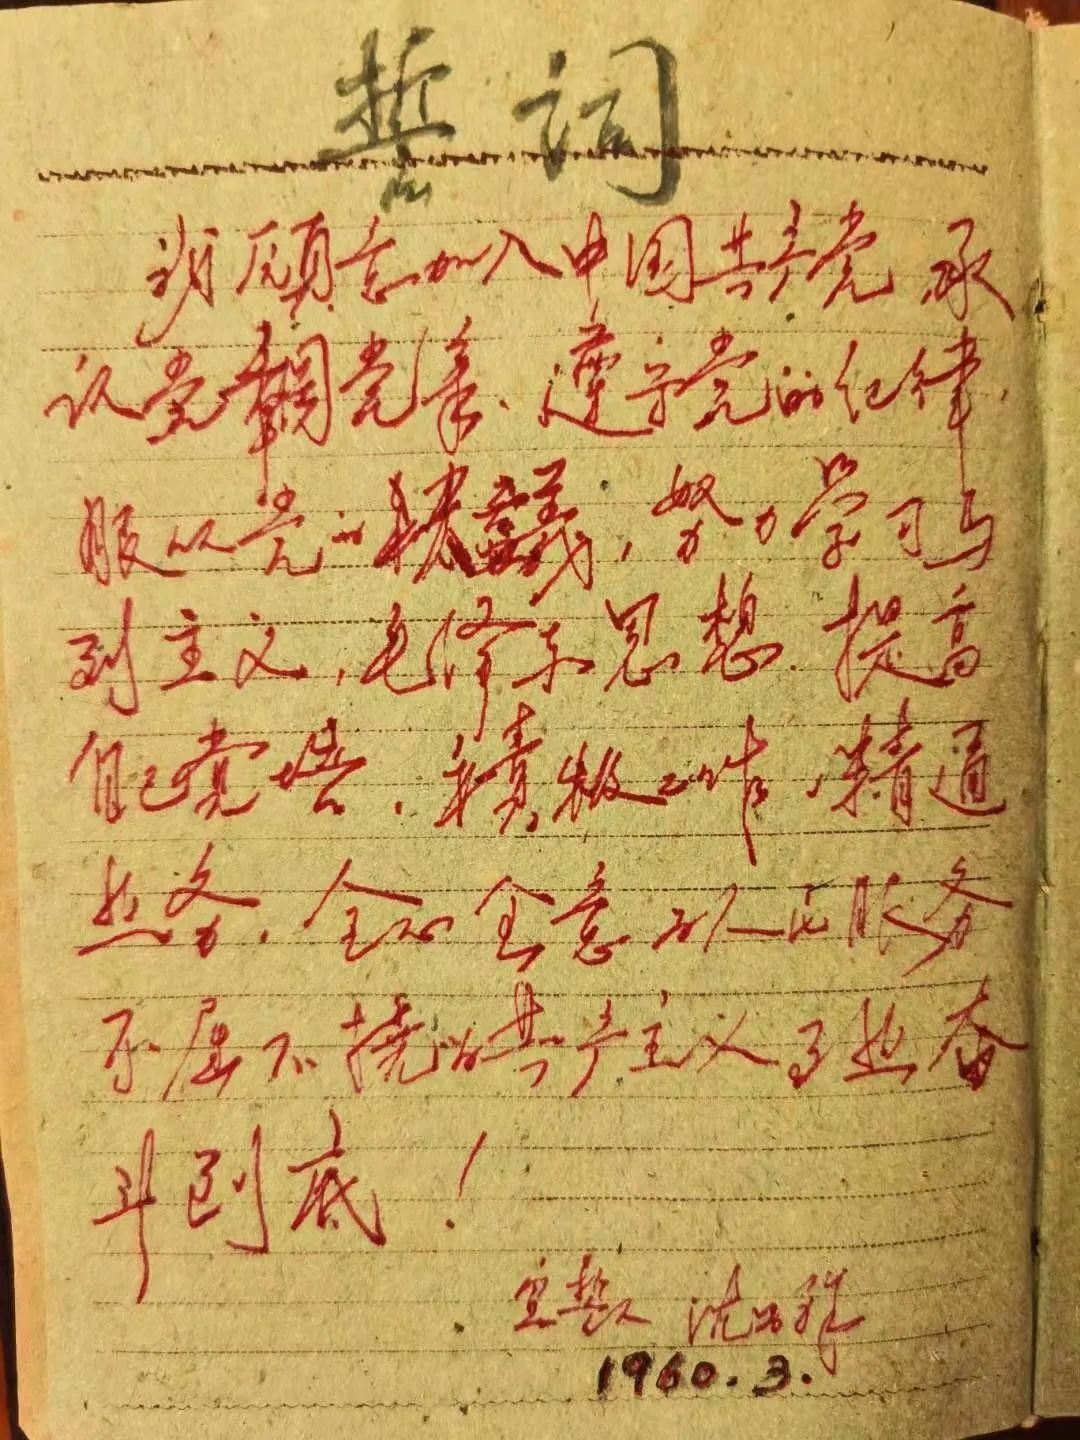 誓词
我愿意加入中国共产党,承
认党纲党章、遵守党的纪律,
服从党的决议,努力学习马
列主义,毛泽东思想、提高
自己觉悟、积极工作、精通
业务,全心全意为人民服务
不屈不挠的为共产主义事业奋
斗到底!
宣誓人 沈
1960.3.